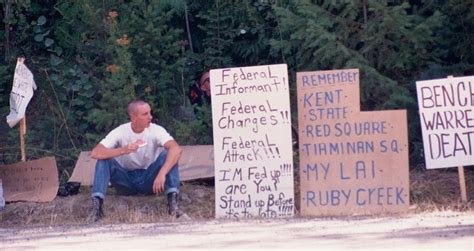 Federal
Informant!
Federal
Charges!!
Federal
Attack!!!
I'M Fed up!!!!
are You?
Stand up Before
its to late!!!!
REMEMBER
KENT-
STATE
RED SQUARE
TIAMINAN SQ.
MY LAI
RUBY CREEK
BENCH
WARRE
DEATH